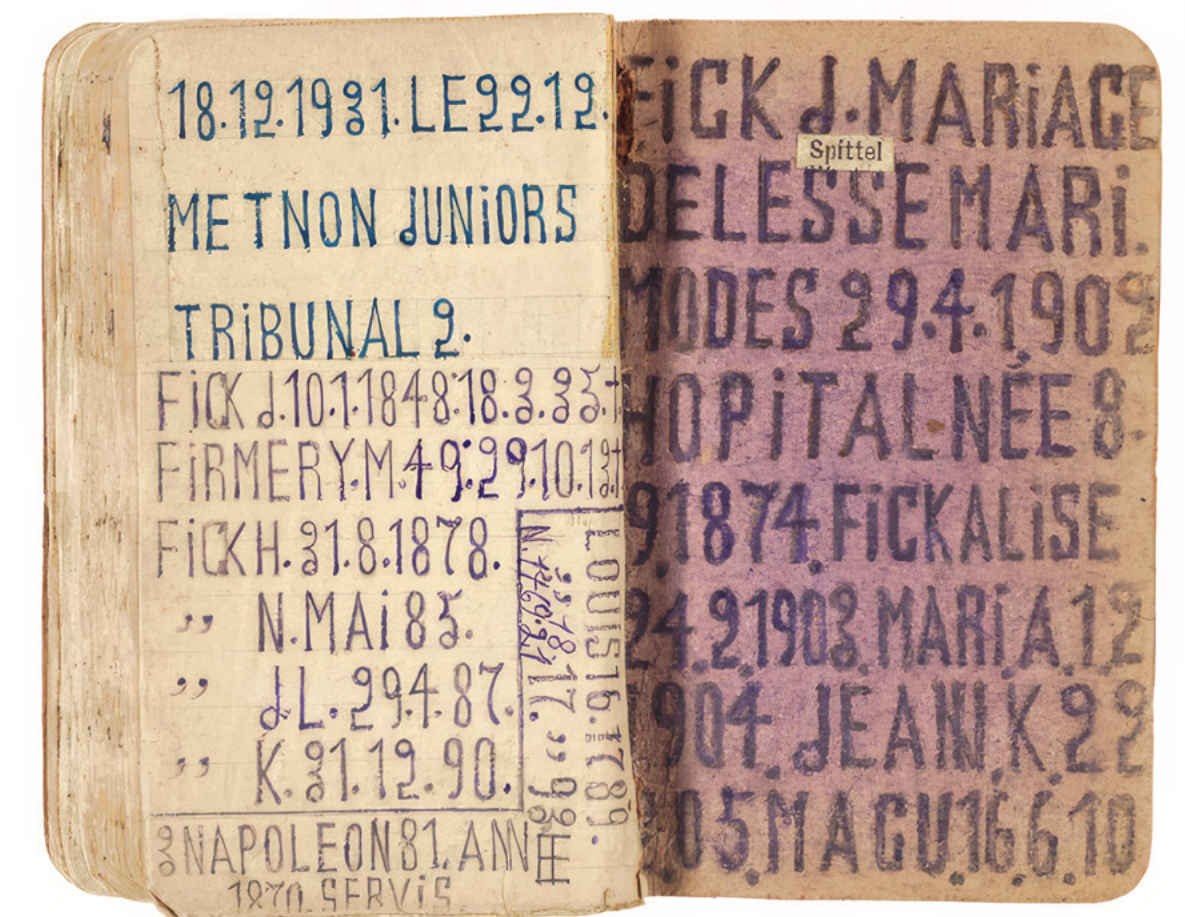 18.12.1931.LE22.12.
MET NON JUNiORS
TRiBUNAL 2.
FiCK J.10.1.1848.18.3.35.†
FiRMERY.M.49.29.10.13†
FiCK H. 31.8.1878.
,, N.MAi 85.
,, J L. 29.4.87.
,, K. 31.12.90.
LOUiS 16. 1789.
NAPOLEON 31. ANN
1870. SERViS
FiCK J. MARiAGE
Spittel
DELESSEMARi.
MODES 29.4.1902
HOPiTAL.NÉE 8.
91874.FiCKALiSE
24.2.1903.MARi.A.12
904.JEAN.K.22
05.MAGU.16.6.10